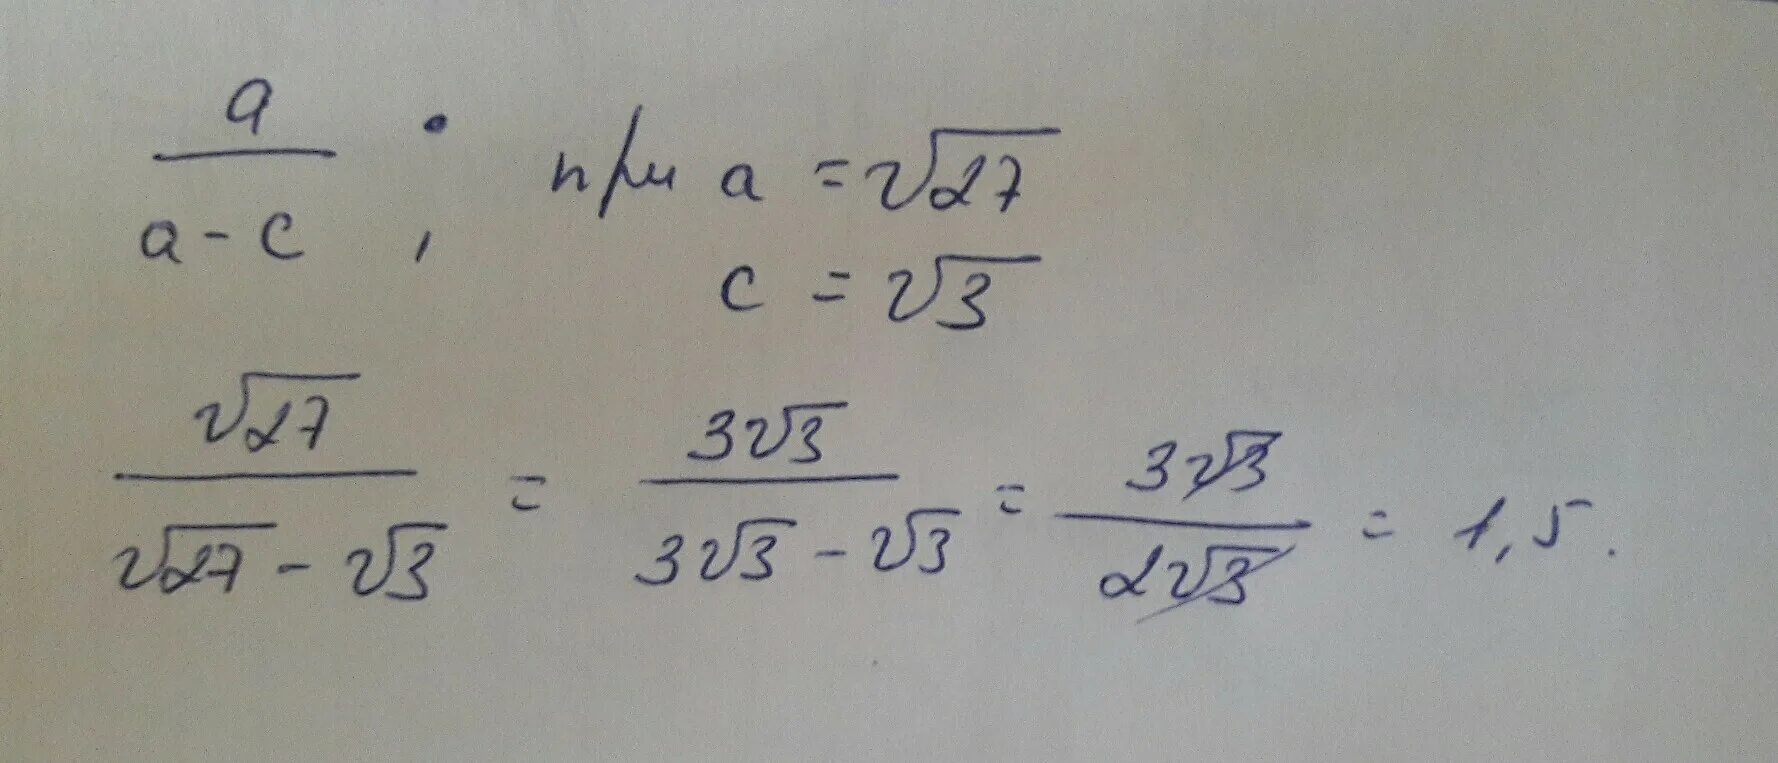 a/(a-c); при a = √27
c = √3
√27/(√27 - √3) = 3√3/(3√3 - √3) = 3√3/2√3 = 1,5.